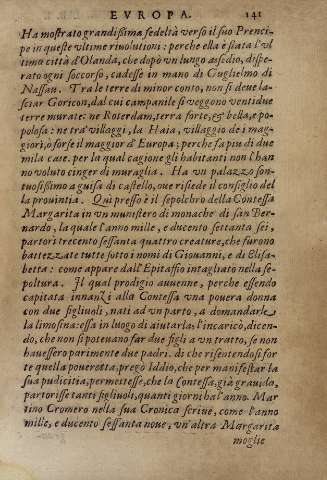 EVROPA. 141
Ha mostrato grandissima fedeltà verso il suo Prenci-
pe in queste vltime riuolutioni: perche ella è stata l'vl
timo città d'Olanda, che dopò vn lungo assedio, dispe-
rato ogni soccorso, cadesse in mano di Guglielmo di
Nassau. Tra le terre di minor conto, non si deue la-
sciar Goricon, dal cui campanile si veggono ventidue
terre murate: ne Roterdam, terra forte, & bella, e po-
polosa: ne tra' villaggi, la Haia, villaggio de i mag-
giori, ò forse il maggior d'Europa; perche fa piu di due
mila case. per la qual cagione gli habitanti non l'han
no voluto cinger di muraglia. Ha vn palazzo son-
tuosissimo a guisa di castello, oue risiede il consiglio del
la prouintia. Qui presso è il sepolchro della Contessa
Margarita in vn munistero di monache di san Ber-
nardo, la quale l'anno mille, e ducento settanta sei,
partorì trecento sessanta quattro creature, che furono
battezzate tutte sotto i nomi di Giouanni, e di Elisa-
betta: come appare dall'Epitaffio intagliato nella se-
poltura. Il qual prodigio auuenne, perche essendo
capitata innanzi alla Contessa vna pouera donna
con due figliuoli, nati ad vn parto, a domandarle
la limosina: essa in luogo di aiutarla: l'incaricò, dicen-
do, che non si poteuano far due figli a vn tratto, se non
hauessero parimente due padri. di che risentendosi for
te quella poueretta, pregò Iddio, che per manifestar la
sua pudicitia, permettesse, che la Contessa, già grauida,
partorisse tanti figliuoli, quanti giorni hà l'anno. Mar
tino Cromero nella sua Cronica scriue, come l'anno
mille, e ducento sessanta noue, vn'altra Margarita
moglie